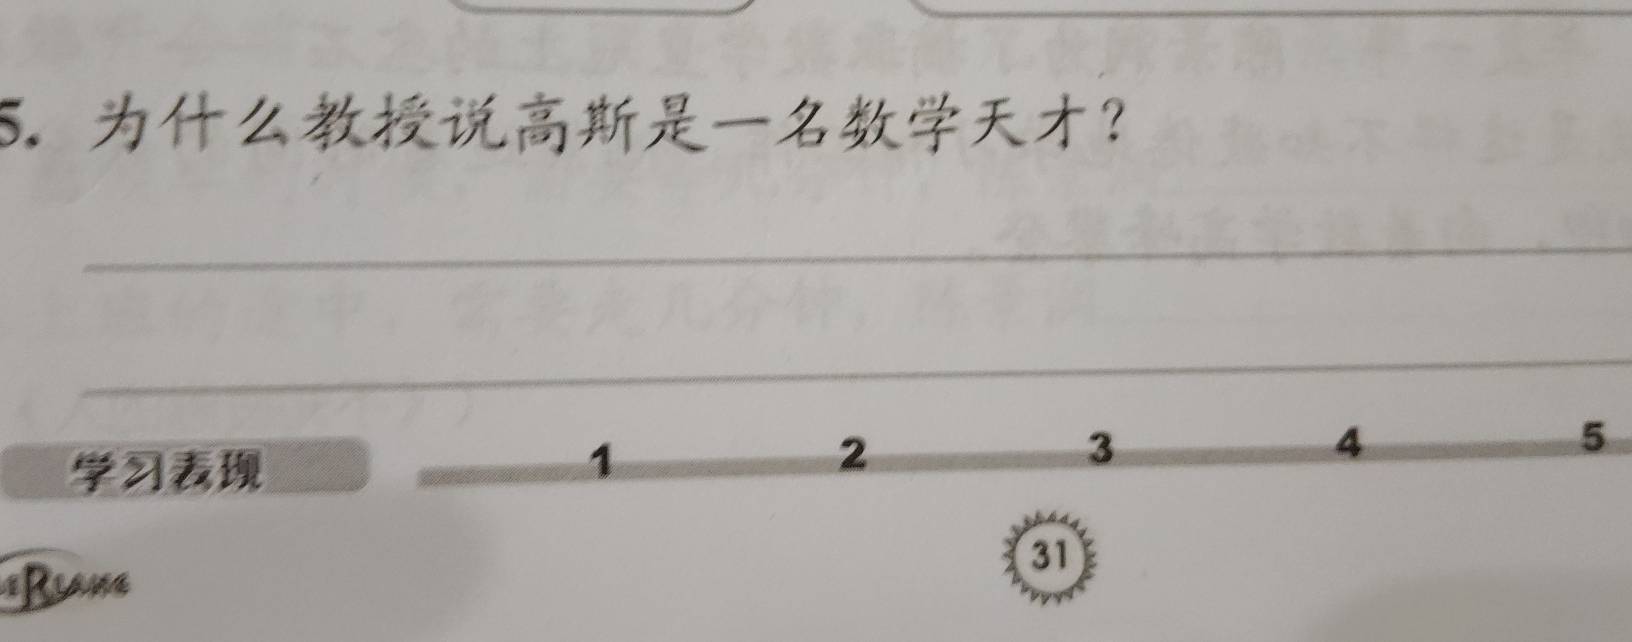 5. 为什么教授说高斯是一名数学天才？
学习表现 1 2 3 4 5
31